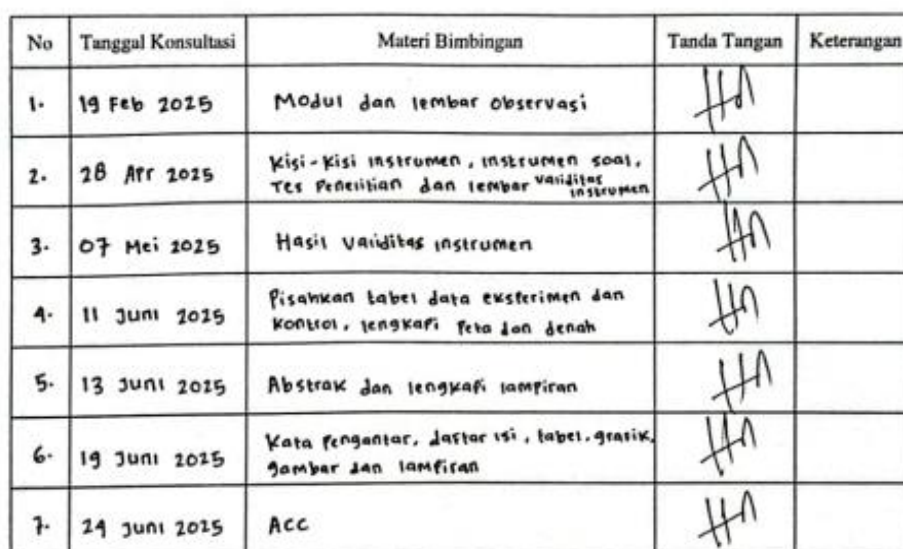 No Tanggal Konsultasi Materi Bimbingan Tanda Tangan Keterangan
1. 19 Feb 2025 Modul dan lembar observasi
2. 28 Apr 2025 Kisi-Kisi instrumen, instrumen soal,
Tes Penelitian dan lembar validitas instrumen
3. 07 Mei 2025 Hasil validitas instrumen
4. 11 Juni 2025 Pisahkan tabel data eksperimen dan
Kontrol, lengkapi Peta dan denah
5. 13 Juni 2025 Abstrak dan lengkapi lampiran
6. 19 Juni 2025 Kata Pengantar, daftar isi, tabel, grafik,
gambar dan lampiran
7. 24 Juni 2025 ACC